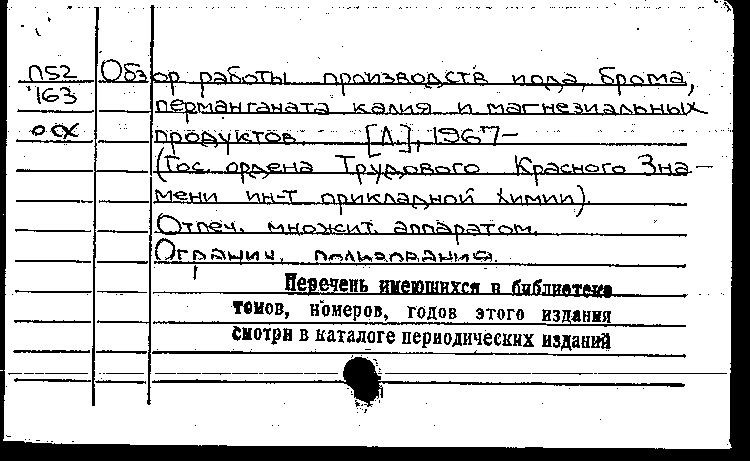 П52 Обзор работы производств иода, брома,
163 перманганата калия и магнезиальных
ох продуктов. [Л.], 1967–
(Гос. ордена Трудового Красного Зна–
мени ин-т прикладной химии).
Отпеч. множит. аппаратом.
Огранич. пользования.
Перечень имеющихся в библиотеке
томов, номеров, годов этого издания
смотри в каталоге периодических изданий